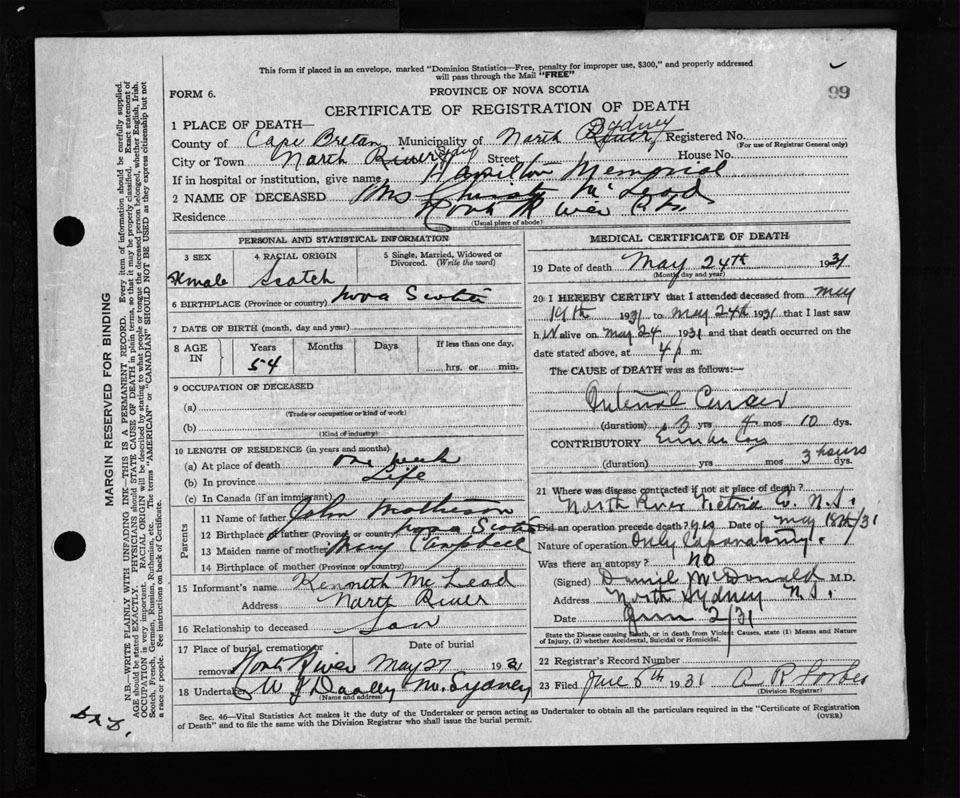 This form if placed in an envelope, marked "Dominion Statistics—Free, penalty for improper use, $300," and properly addressed
will pass through the Mail "FREE"
99
FORM 6.
PROVINCE OF NOVA SCOTIA
CERTIFICATE OF REGISTRATION OF DEATH
1 PLACE OF DEATH—
County of Cape Breton Municipality of North River Sydney Registered No.
(For use of Registrar General only)
City or Town North River Sydney Street House No.
If in hospital or institution, give name Hamilton Memorial
2 NAME OF DECEASED Mrs Christy McLead
Residence North River
(Usual place of abode)
PERSONAL AND STATISTICAL INFORMATION
3 SEX 4 RACIAL ORIGIN 5 Single, Married, Widowed or Divorced. (Write the word)
Female Scotch
6 BIRTHPLACE (Province or country) Nova Scotia
7 DATE OF BIRTH (month, day and year)
8 AGE IN Years Months Days If less than one day,
54 hrs. or min.
9 OCCUPATION OF DECEASED
(a)
(Trade or occupation or kind of work)
(b)
(Kind of industry)
10 LENGTH OF RESIDENCE (in years and months)
(a) At place of death one week
(b) In province Life
(c) In Canada (if an immigrant)
Parents
11 Name of father John Matheson
12 Birthplace of father (Province or country) Nova Scotia
13 Maiden name of mother Mary Campbell
14 Birthplace of mother (Province or country)
15 Informant's name Kenneth McLead
Address North River
16 Relationship to deceased Son
17 Place of burial, cremation or Date of burial
removal North River May 27 1931
18 Undertaker W J Dooley No. Sydney
(Name and address)
MEDICAL CERTIFICATE OF DEATH
19 Date of death May 24th 1931
(Month, day and year)
20 I HEREBY CERTIFY that I attended deceased from May
19th 1931 to May 24th 1931 that I last saw
h alive on May 24 1931 and that death occurred on the
date stated above, at 4 p m.
The CAUSE of DEATH was as follows:—
Internal Cancer
(duration) 3 yrs 4 mos 10 dys.
CONTRIBUTORY
(duration) yrs mos 3 hours dys.
21 Where was disease contracted if not at place of death?
North River Victoria Co. N.S.
Did an operation precede death? yes Date of May 18th/31
Nature of operation Only laparatomy.
Was there an autopsy? No
(Signed) Daniel McDonald M.D.
Address North Sydney N.S.
Date June 2/31
State the Disease causing Death, or in death from Violent Causes, state (1) Means and Nature
of Injury, (2) whether Accidental, Suicidal or Homicidal.
22 Registrar's Record Number
23 Filed June 6th 1931 A P Forbes
(Division Registrar)
Sec. 46—Vital Statistics Act makes it the duty of the Undertaker or person acting as Undertaker to obtain all the particulars required in the "Certificate of Registration
of Death" and to file the same with the Division Registrar who shall issue the burial permit.
(OVER)
MARGIN RESERVED FOR BINDING
N.B.—WRITE PLAINLY WITH UNFADING INK—THIS IS A PERMANENT RECORD. Every item of information should be carefully supplied.
AGE should be stated EXACTLY. PHYSICIANS should STATE CAUSE OF DEATH in plain terms, so that it may be properly classified. Exact statement of
OCCUPATION is very important. RACIAL ORIGIN will be described by stating to what people or tongue the deceased person belonged, whether English, Irish,
Scotch, French, German, Russian, Ruthenian, etc. The terms "AMERICAN" or "CANADIAN" SHOULD NOT BE USED as they express citizenship but not
a race or people. See instructions on back of Certificate.